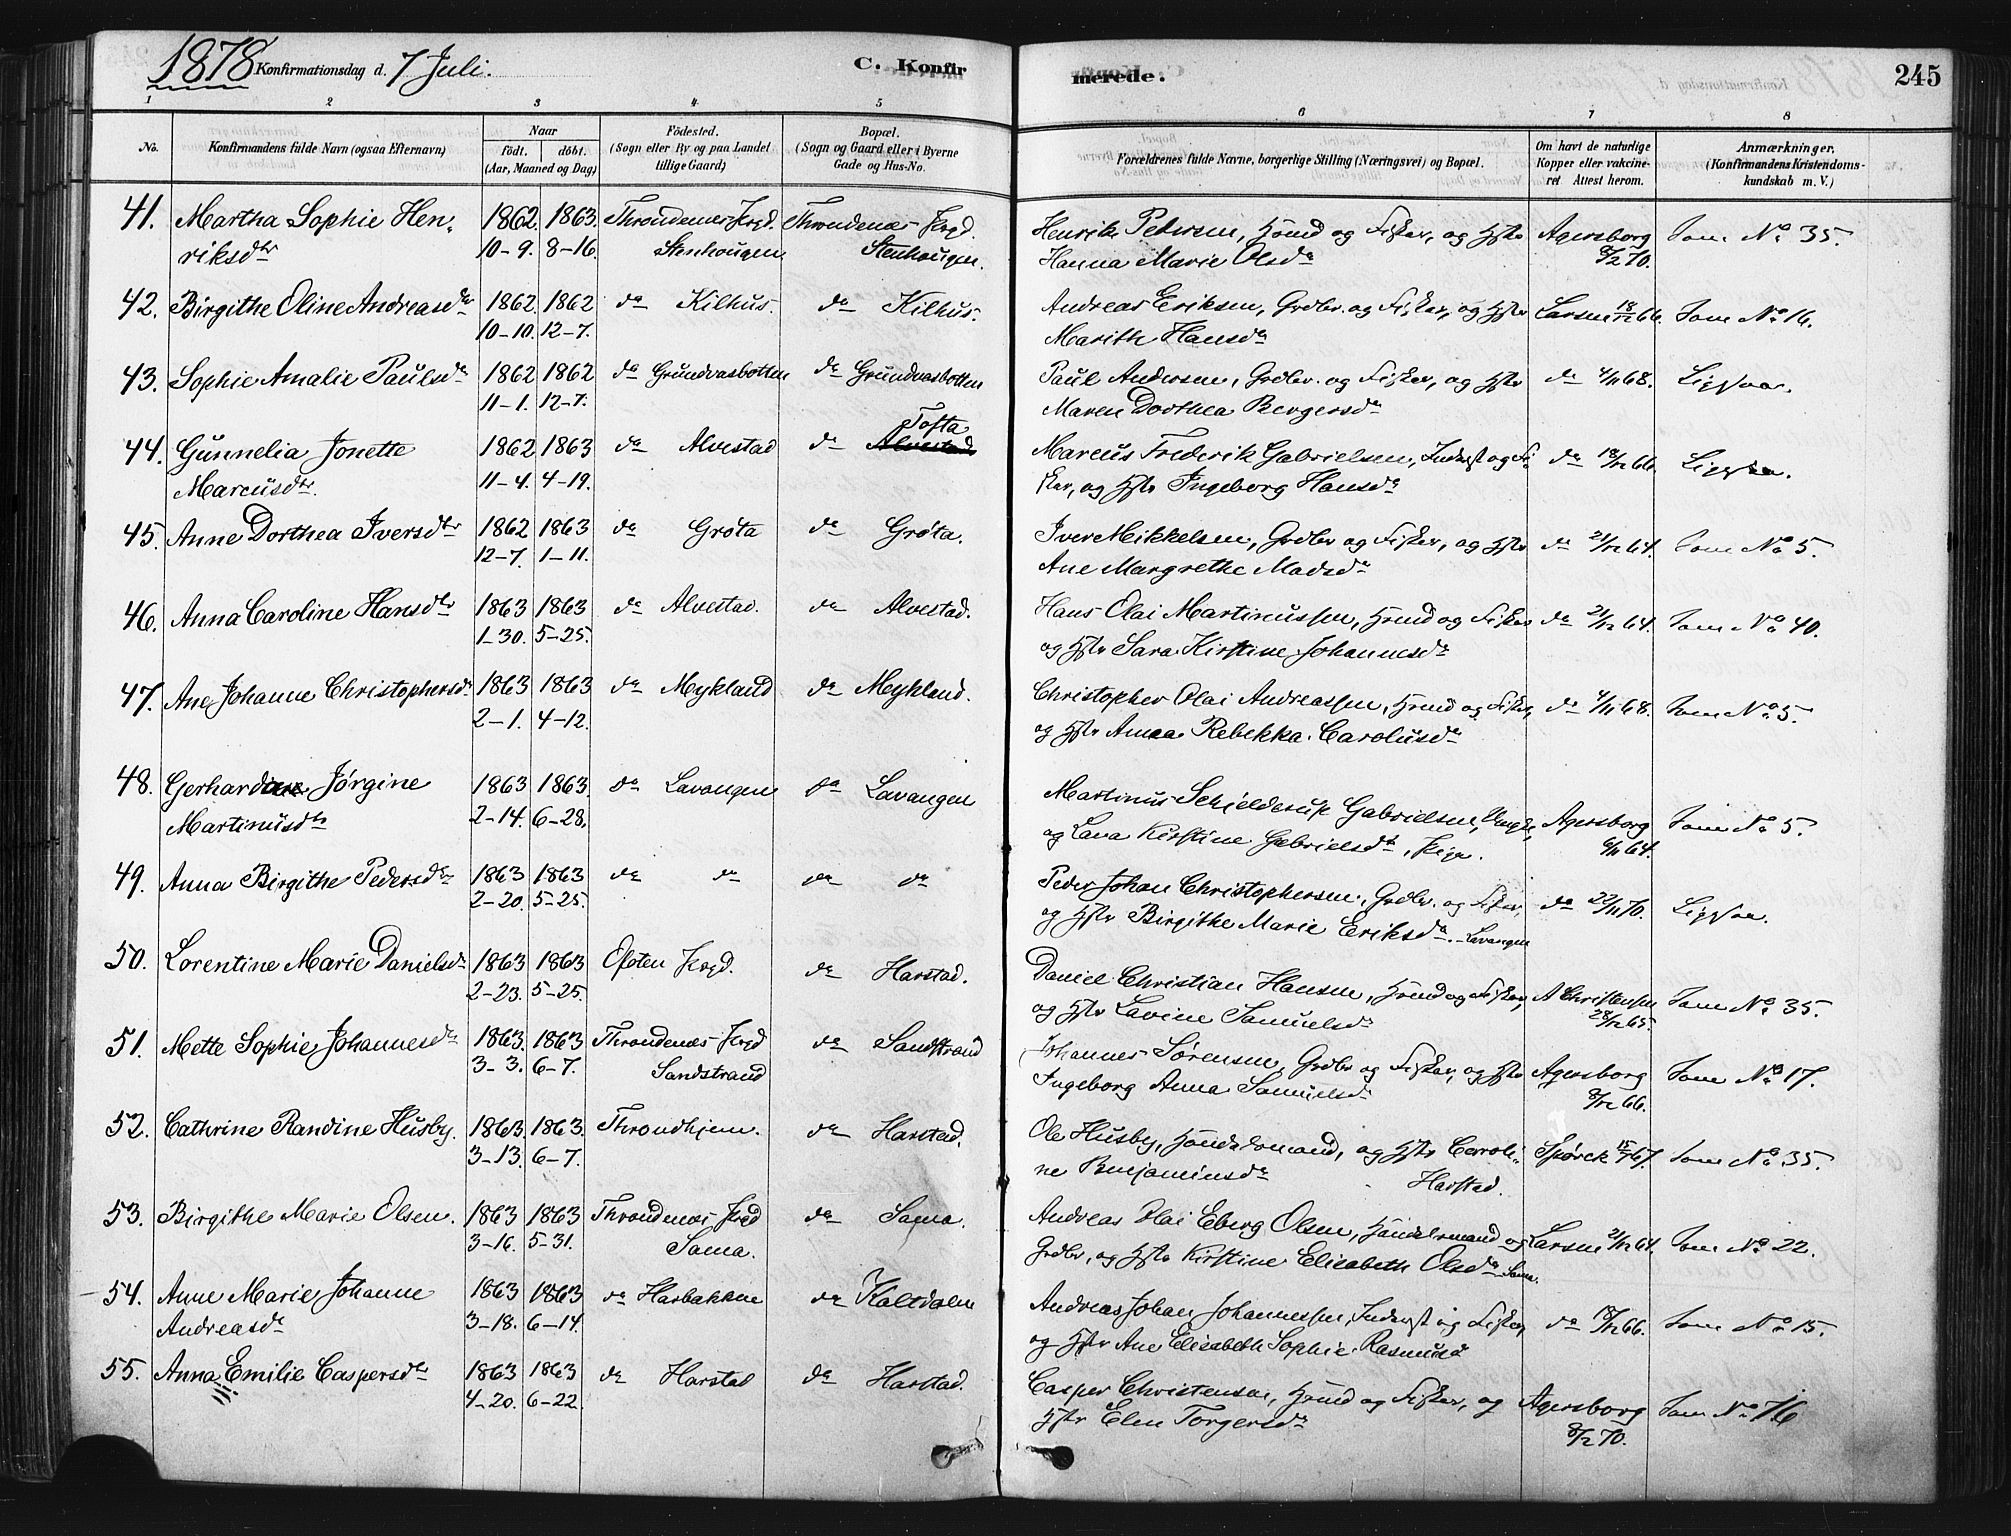 1878 Konfirmationsdag d. 7 Juli. C. Konfir merede. 245
1 2 3 4 5 6 7 8
No. Konfirmandens fulde Navn (ogsaa Efternavn) Naar födt. döbt. (Aar, Maaned og Dag) Födested. (Sogn eller By og paa Landet tillige Gaard) Bopæl. (Sogn og Gaard eller i Byerne Gade og Hus-No. Forældrenes fulde Navne, borgerlige Stilling (Næringsvei) og Bopæl. Om havt de naturlige Kopper eller vakcineret Attest herom. Anmærkninger. (Konfirmandens Kristendomskundskab m. V.)
41. Martha Sophie Hen- 1862. 1863. Throndenes Prgd. Throndenæs Prgd. Henrik Petersen, Hsmd og Fisker, og Hstr Agersborg Som No 35.
riksdtr 10-9. 8-16. Stenhougen Stenhougen. Hanna Marie Olsdr 8/2 70.
42. Birgithe Oline Andreasdtr 1862. 1862 do Kilhus. do Kilhus. Andreas Eriksen, Grdbr. og Fisker, og Hstr Larsen 18/12 66. Som No 16.
10-10. 12-7. Marith Hansdr
43. Sophie Amalie Paulsdr 1862 1862 do Grundvasbotten do Grundvasbotten Paul Andersen, Grdbr. og Fisker, og Hstr do 4/11 68.
11-1. 12-7. Maren Dorthea Bergersdr
Tofta
44. Gunnelia Jonette 1862 1863 do Alvestad do Alvestad Marcus Frederik Gabrielsen, Inderst og Fi- do 18/12 66.
Marcusdtr. 11-4. 4-19. sker, og Hstr Ingeborg Hansdr
45. Anne Dorthea Iversdtr 1862 1863 do Grøta do Grøta. Iver Mikkelsen, Grdbr og Fisker, og Hstr do 21/12 64. Som No 5.
12-7. 1-11. Ane Margrethe Madsdr
46. Anna Caroline Hansdtr 1863 1863 do Alvestad. do Alvestad. Hans Olai Martinussen, Hsmd og Fisker do 21/12 64. Som No 40.
1-30. 5-25. og Hstr Sara Kirstine Johannesdr
47. Ane Johanne Christophersdr 1863 1863 do Mykland do Mykland. Christopher Olai Andreassen, Hsmd og Fisker, do 4/11 68. Som No 5.
2-1. 4-12. og Hstr Anna Rebekka Carolusdr
48. Gerhardine Jørgine 1863 1863. do Lavangen do Lavangen Martinus Schjelderup Gabrielsen, Ungk, Agersborg Som No 5.
Martinusdtr 2-14. 6-28. og Lava Kirstine Gabrielsdt, Pige. 6/11 64.
49. Anna Birgithe Pedersdtr 1863 1863 do do do do Peder Johan Christophersen, Grdbr. og Fisker, do 22/11 70.
2-20. 5-25. og Hstr Birgithe Marie Eriksdr. Lavangen
50. Lorentine Marie Danielsdr 1863 1863 Ofoten Prgd. do Harstad. Daniel Christian Hansen, Hsmd og Fisker, A Christensen Som No 35.
2-23. 5-25. og Hstr Lavine Samuelsdr 28/12 65.
51. Mette Sophie Johannesdtr 1863. 1863 Throndenæs Prgd do Sandstrand Johannes Sørensen, Grdbr og Fisker, og Hstr Agersborg Som No 17.
3-3. 6-7. Sandstrand Ingeborg Anna Samuelsdr 8/12 66.
52. Cathrine Randine Husby. 1863. 1863. Throndhjem. do Harstad. Ole Husby, Handelsmand, og Hstr Caroli- Spörck 15/7 67. Som No 35.
3-13. 6-7. ne Benjaminsdr Harstad.
53. Birgithe Marie Olsen. 1863 1863 Throndenæs Prgd do Sama. Andreas Olai Eberg Olsen, Handelsmand og Larsen 21/12 64. Som No 22.
3-16. 5-31. Sama. Grdbr, og Hstr Kirstine Elisabeth Olsdr Sama.
54. Anne Marie Johanne 1863 1863 do Harbakken do Koltdalen Andreas Johan Johannessen, Inderst og Fisker, do 18/12 66. Som No 15.
Andreasdr 3-18. 6-14. og Hstr Ane Elisabeth Sophie Rasmusd
55. Anna Emilie Caspersdtr 1863 1863 do Harstad do Harstad. Casper Christensen, Hsmd og Fisker, og Agersborg Som No 16
4-20. 6-22. Hstr Elen Torgersdr 8/2 70.